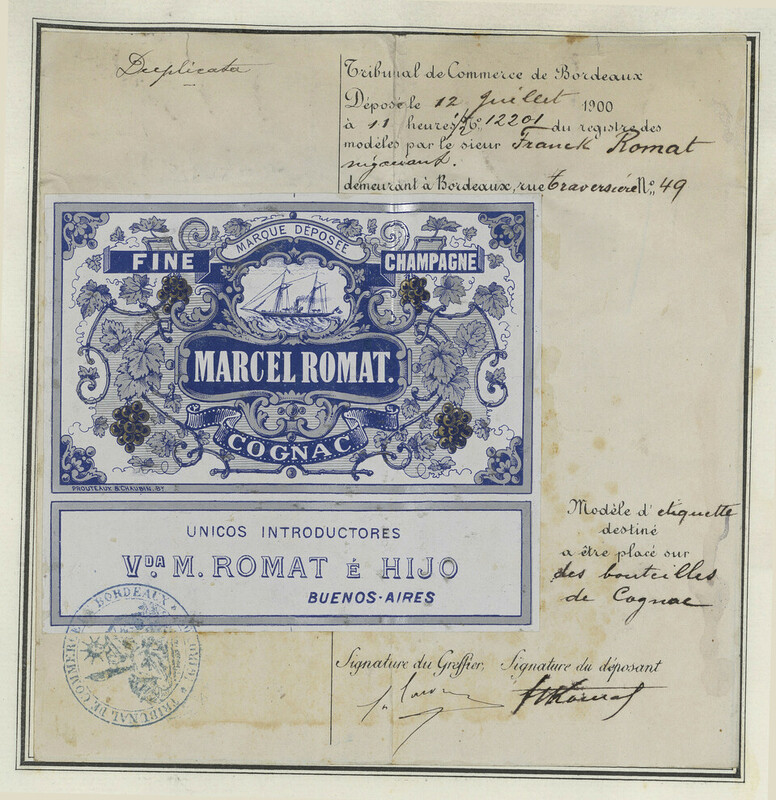 Duplicata
Tribunal de Commerce de Bordeaux
Déposé le 12 Juillet 1900
à 11 heures 1/2 No. 12201 du registre des
modèles par le sieur Franck Romat
négociant.
demeurant à Bordeaux, rue Traversière No. 49
MARQUE DÉPOSÉE
FINE CHAMPAGNE
MARCEL ROMAT.
COGNAC
PROUTEAUX & CHAUBIN, Bx
UNICOS INTRODUCTORES
VDA M. ROMAT É HIJO
BUENOS-AIRES
Modèle d'étiquette
destiné
a être placé sur
des bouteilles
de Cognac
TRIBUNAL DE COMMERCE BORDEAUX
Signature du Greffier, Signature du déposant